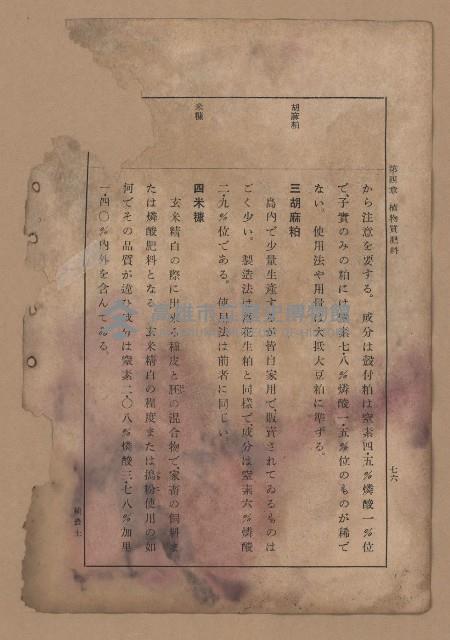 第四章 植物質肥料
七六
胡麻粕
米糠
から注意を要する。成分は殼付粕は窒素四・五%燐酸一%位
で、子實のみの粕には窒素七・八%燐酸一・五%位のものが稀で
ない。使用法や用量は大抵大豆粕に準ずる。
三 胡麻粕
島内で少量生産するが皆自家用で、販賣されてゐるものは
ごく少い。製造法は落花生粕と同樣で、成分は窒素六%燐酸
二・九%位である。使用法は前者に同じい。
四 米糠
玄米精白の際に出來る種皮と胚の混合物で、家畜の飼料ま
たは燐酸肥料となる。玄米精白の程度または搗粉使用の如
何でその品質が違ひ、成分は窒素二・〇八%燐酸三・七八%加里
一・四〇%内外を含んでゐる。
高雄市立歷史博物館